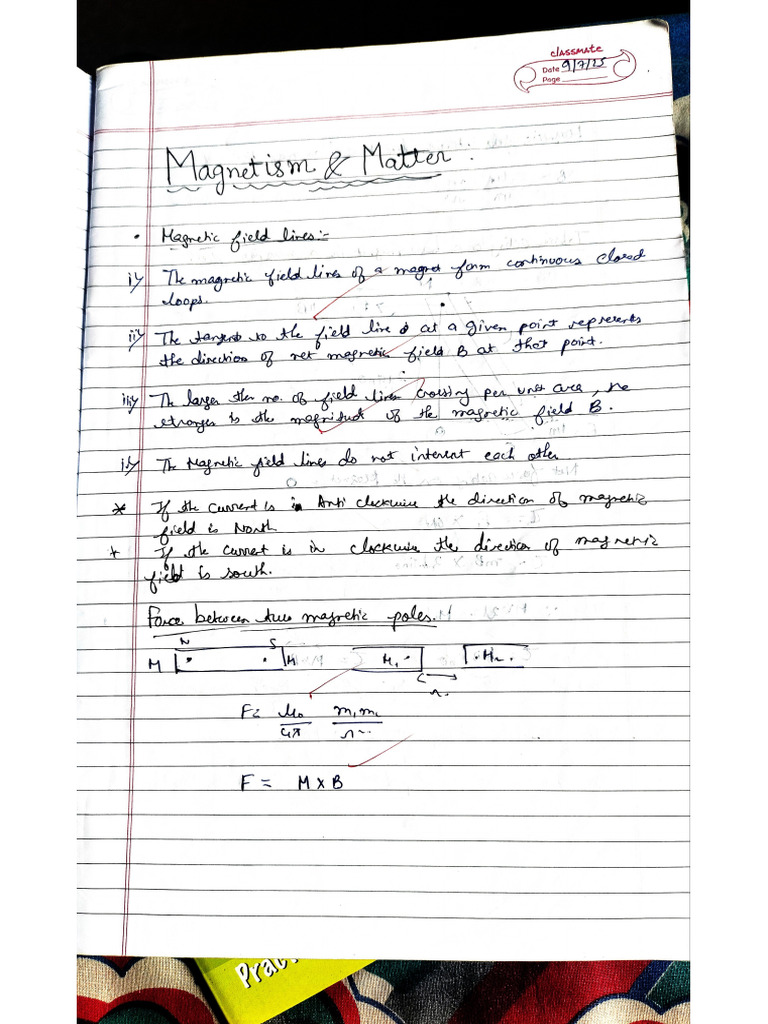 classmate
Date 9/7/25
Page
Magnetism & Matter.
• Magnetic field lines:-
i) The magnetic field lines of a magnet form continuous closed
loops.
ii) The tangent to the field line at a given point represents
the direction of net magnetic field B at that point.
iii) The larger the no. of field lines crossing per unit area, the
stronger is the magnitude of the magnetic field B.
iv) The Magnetic field lines do not intersect each other
* If the current is in Anti clockwise the direction of magnetic
field is North
+ If the current is in clockwise the direction of magnetic
field is south.
Force between two magnetic poles.
N S
M M M₁ M₂
r
F = μ₀/4π m₁m₂/r²
F = M × B
Prac